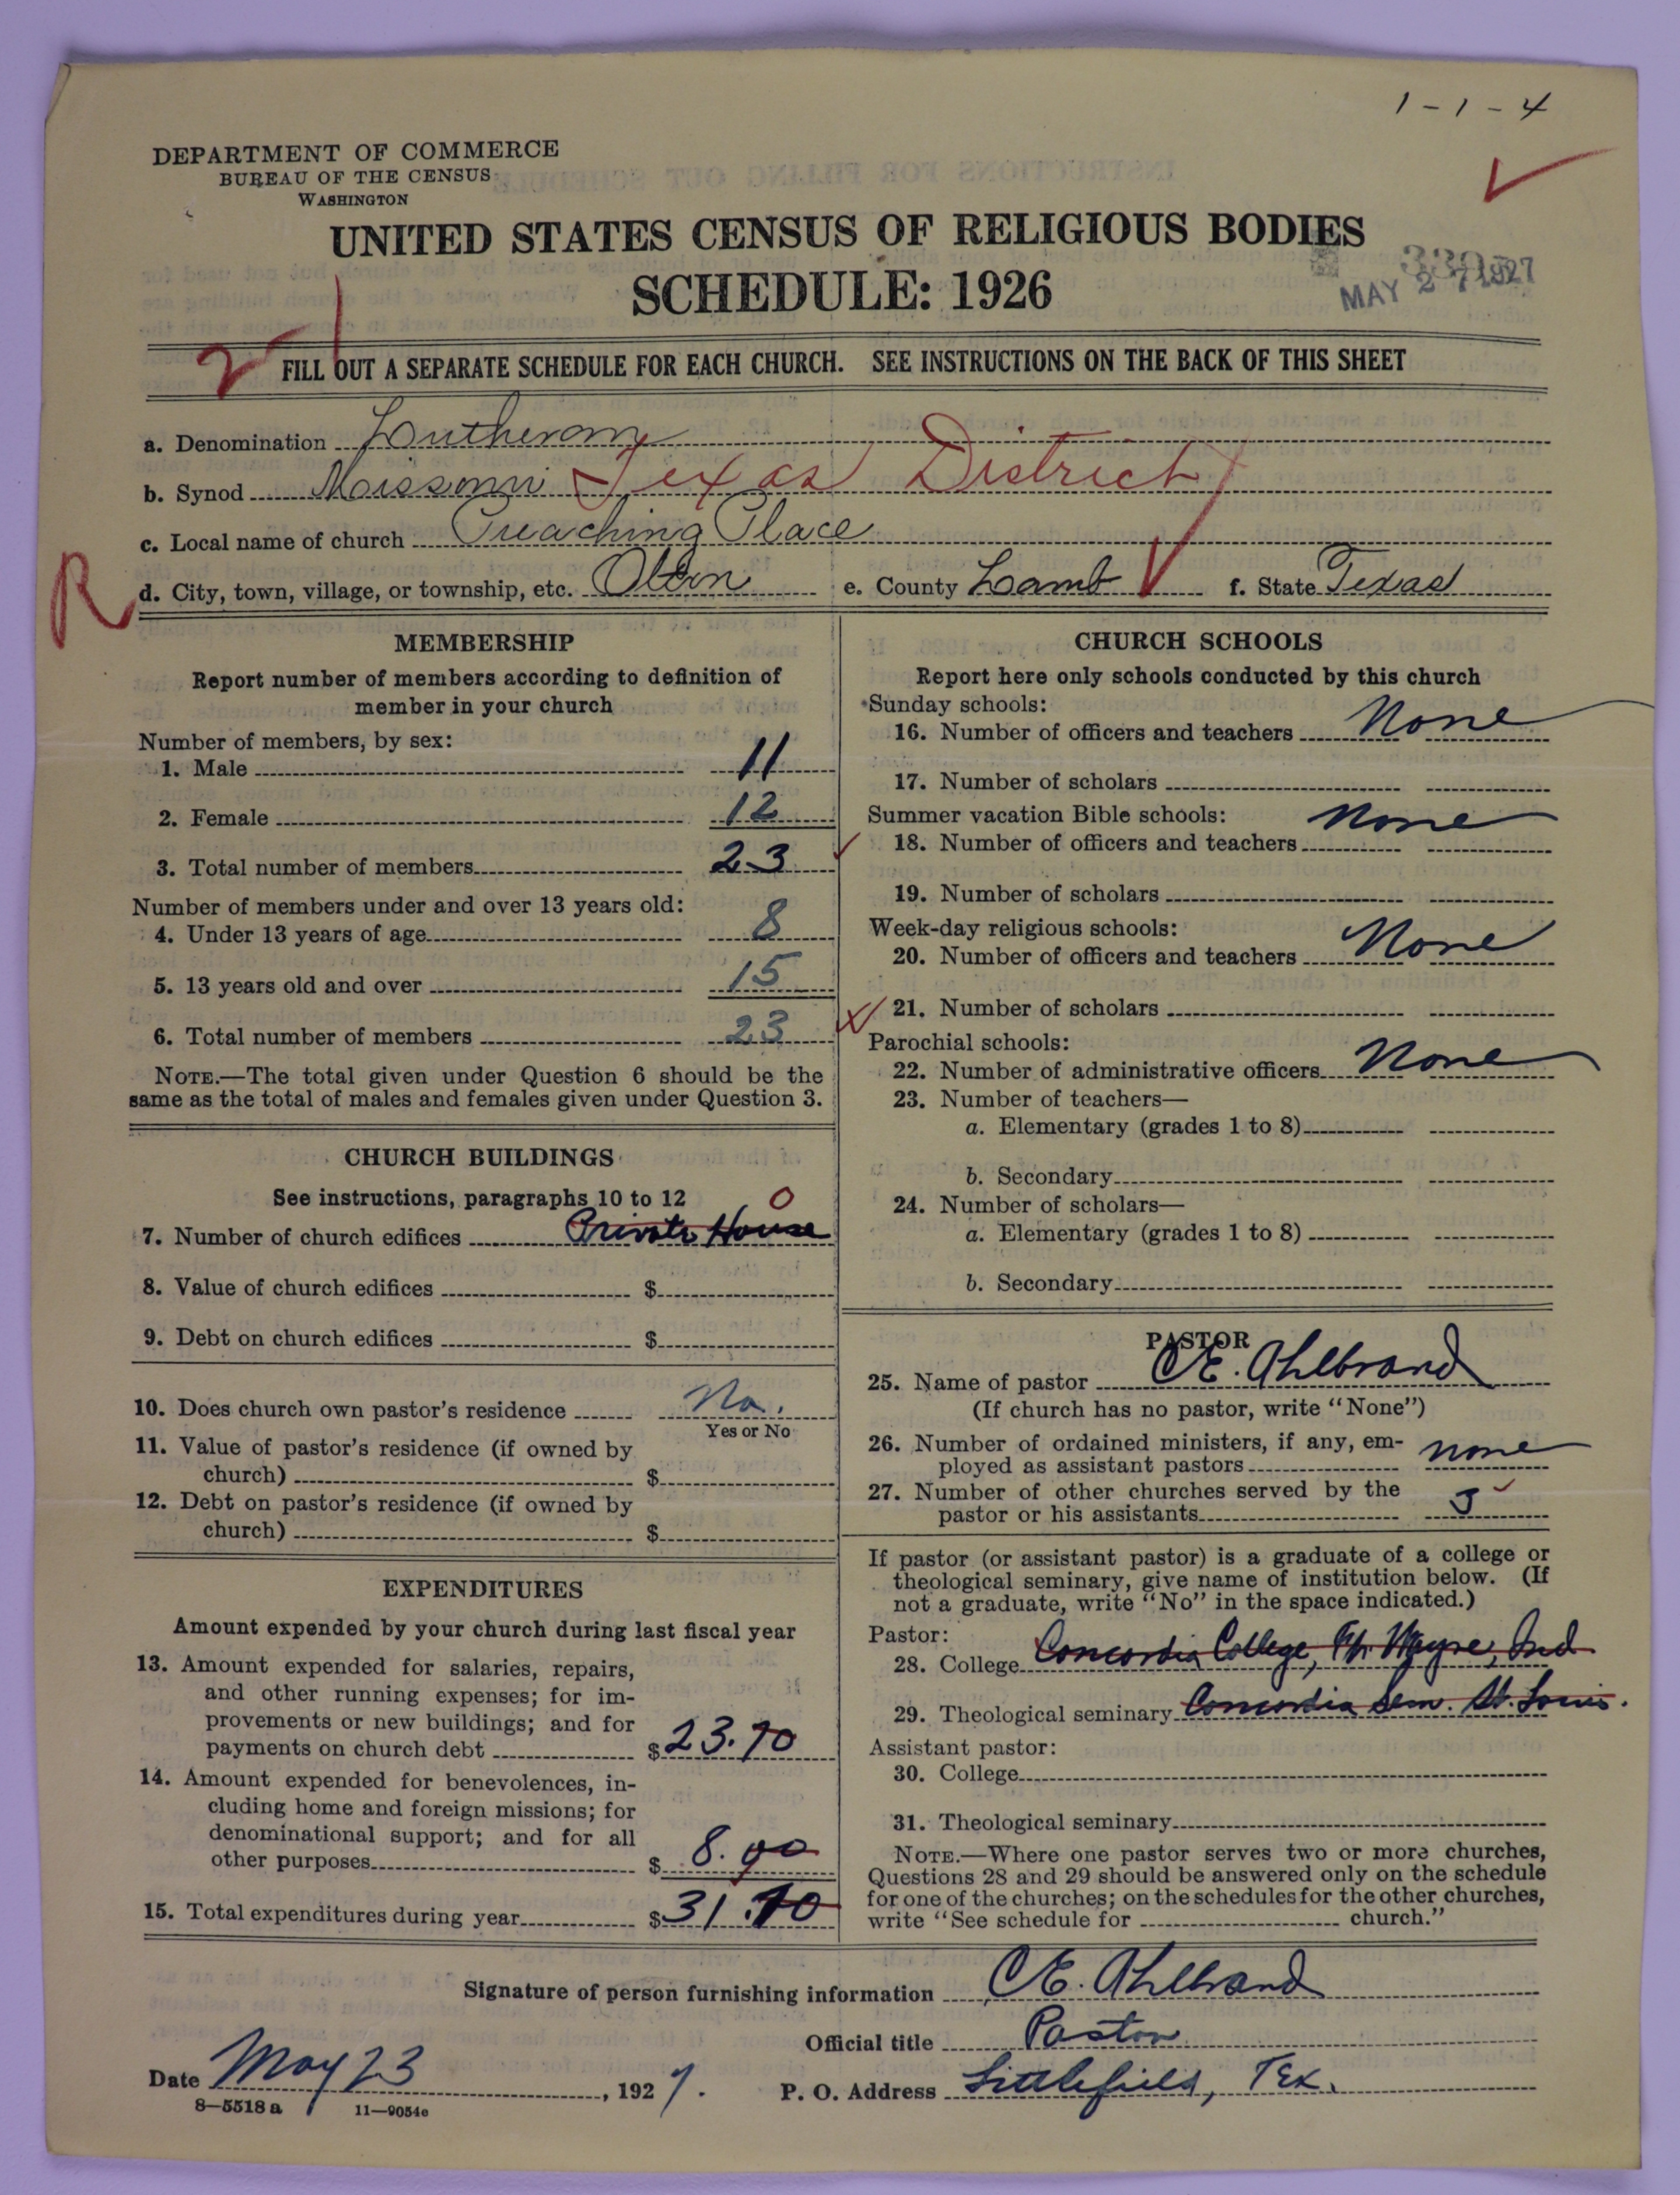 1-1-4
DEPARTMENT OF COMMERCE
BUREAU OF THE CENSUS
WASHINGTON
UNITED STATES CENSUS OF RELIGIOUS BODIES
SCHEDULE: 1926
MAY 27 1927
FILL OUT A SEPARATE SCHEDULE FOR EACH CHURCH. SEE INSTRUCTIONS ON THE BACK OF THIS SHEET
a. Denomination Lutheran
b. Synod Missouri Texas District
c. Local name of church Preaching Place
R
d. City, town, village, or township, etc. Olton e. County Lamb f. State Texas
MEMBERSHIP
Report number of members according to definition of
member in your church
Number of members, by sex:
1. Male 11
2. Female 12
3. Total number of members 23
Number of members under and over 13 years old:
4. Under 13 years of age 8
5. 13 years old and over 15
6. Total number of members 23
NOTE.—The total given under Question 6 should be the
same as the total of males and females given under Question 3.
CHURCH BUILDINGS
See instructions, paragraphs 10 to 12 0
7. Number of church edifices Private House
8. Value of church edifices $
9. Debt on church edifices $
10. Does church own pastor's residence No.
Yes or No
11. Value of pastor's residence (if owned by
church) $
12. Debt on pastor's residence (if owned by
church) $
EXPENDITURES
Amount expended by your church during last fiscal year
13. Amount expended for salaries, repairs,
and other running expenses; for im-
provements or new buildings; and for
payments on church debt $23.70
14. Amount expended for benevolences, in-
cluding home and foreign missions; for
denominational support; and for all
other purposes $8.00
15. Total expenditures during year $31.70
CHURCH SCHOOLS
Report here only schools conducted by this church
Sunday schools:
16. Number of officers and teachers None
17. Number of scholars
Summer vacation Bible schools:
18. Number of officers and teachers None
19. Number of scholars
Week-day religious schools:
20. Number of officers and teachers None
21. Number of scholars
Parochial schools:
22. Number of administrative officers None
23. Number of teachers—
a. Elementary (grades 1 to 8)
b. Secondary
24. Number of scholars—
a. Elementary (grades 1 to 8)
b. Secondary
PASTOR
25. Name of pastor C E. Ahlbrand
(If church has no pastor, write "None")
26. Number of ordained ministers, if any, em-
ployed as assistant pastors none
27. Number of other churches served by the
pastor or his assistants 5
If pastor (or assistant pastor) is a graduate of a college or
theological seminary, give name of institution below. (If
not a graduate, write "No" in the space indicated.)
Pastor:
28. College Concordia College, Ft. Wayne, Ind
29. Theological seminary Concordia Sem. St. Louis.
Assistant pastor:
30. College
31. Theological seminary
NOTE.—Where one pastor serves two or more churches,
Questions 28 and 29 should be answered only on the schedule
for one of the churches; on the schedules for the other churches,
write "See schedule for church."
Signature of person furnishing information C E. Ahlbrand
Official title Pastor
Date May 23, 1927. P. O. Address Littlefield, Tex.
8—5518 a 11—9054c